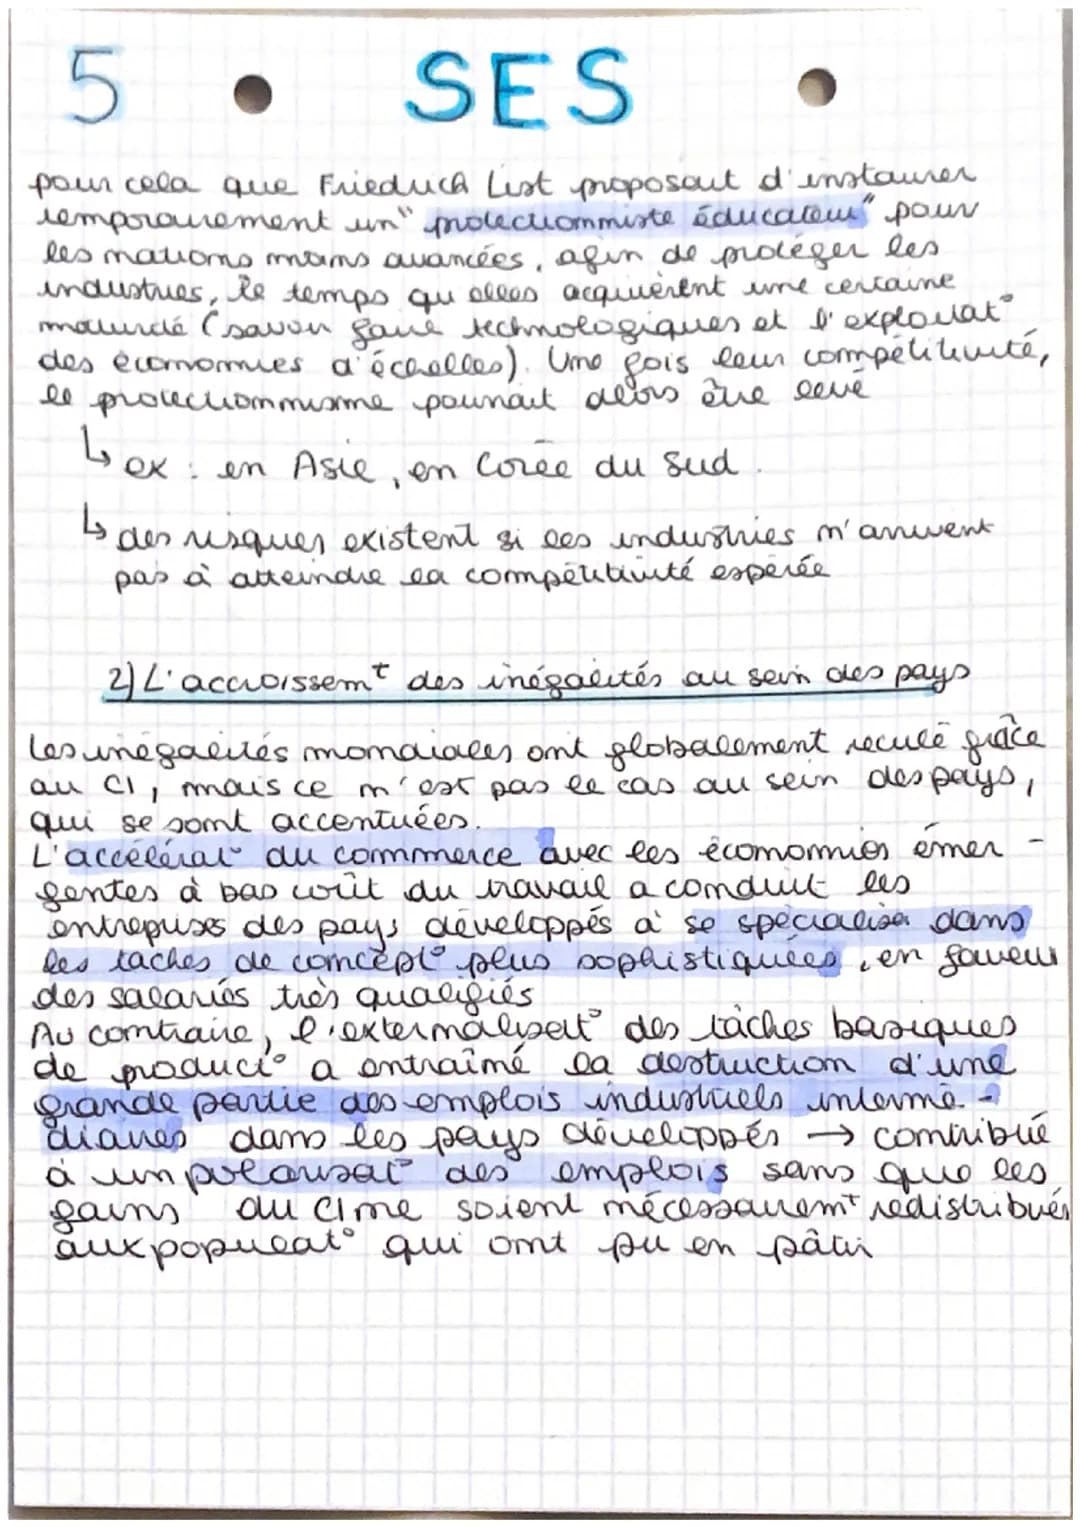 5 SES
pour cela que Friedrich List proposait d'instaurer
temporairement un "protectionnniste éducateur" pour
les nations moins avancées, afin de protéger les
industries, le temps qu'elles acquièrent une certaine
maturité (savoir faire technologiques et l'exploitat°
des économies d'échelles). Une fois leur compétitivité,
le protectionnisme pourrait alors être levé
↳ ex : en Asie, en Corée du Sud.
↳ des risques existent si les industries n'arrivent
pas à atteindre la compétitivité espérée
2) L'accroissemt des inégalités au sein des pays
Les inégalités mondiales ont globalement reculé grâce
au CI, mais ce n'est pas le cas au sein des pays,
qui se sont accentuées.
L'accélérat° du commerce avec les économies émer-
gentes à bas coût du travail a conduit les
entreprises des pays développés à se spécialiser dans
les taches de concept° plus sophistiquées, en faveur
des salariés très qualifiés
Au contraire, l'externalisat° des tâches basiques
de product° a entraîné la destruction d'une
grande partie des emplois industriels intermé-
diaires dans les pays développés → contribué
à un polarisat° des emplois sans que les
gains du CI ne soient nécessairemt redistribués
aux populat° qui ont pu en pâtir